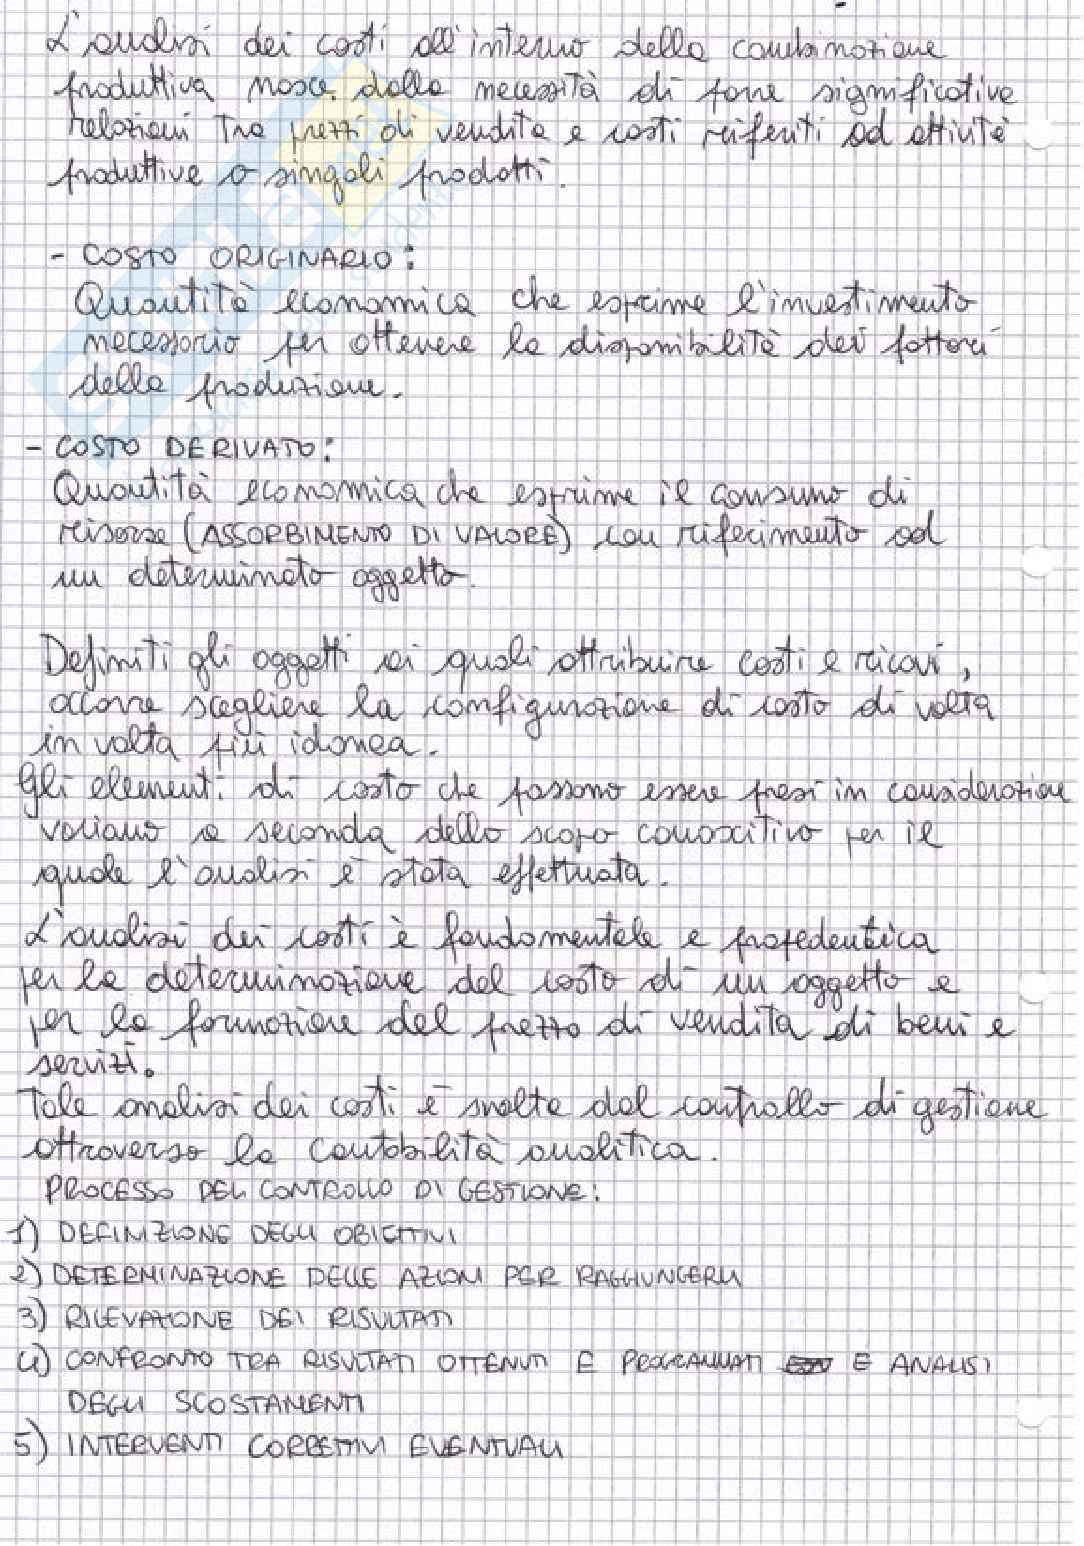 L'analisi dei costi all'interno della combinazione
produttiva nasce dalla necessità di porre significative
relazioni tra prezzi di vendita e costi riferiti ad attività
produttive o singoli prodotti.
- COSTO ORIGINARIO:
Quantità economica che esprime l'investimento
necessario per ottenere la disponibilità dei fattori
della produzione.
- COSTO DERIVATO:
Quantità economica che esprime il consumo di
risorse (ASSORBIMENTO DI VALORE) con riferimento ad
un determinato oggetto.
Definiti gli oggetti ai quali attribuire costi e ricavi,
occorre scegliere la configurazione di costo di volta
in volta più idonea.
Gli elementi di costo che possono essere presi in considerazione
variano a seconda dello scopo conoscitivo per il
quale l'analisi è stata effettuata.
L'analisi dei costi è fondamentale e propedeutica
per la determinazione del costo di un oggetto e
per la formazione del prezzo di vendita di beni e
servizi.
Tale analisi dei costi è svolta dal controllo di gestione
attraverso la contabilità analitica.
PROCESSO DEL CONTROLLO DI GESTIONE:
1) DEFINIZIONE DEGLI OBIETTIVI
2) DETERMINAZIONE DELLE AZIONI PER RAGGIUNGERLI
3) RILEVAZIONE DEI RISULTATI
4) CONFRONTO TRA RISULTATI OTTENUTI E PROGRAMMATI E ANALISI
DEGLI SCOSTAMENTI
5) INTERVENTI CORRETTIVI EVENTUALI